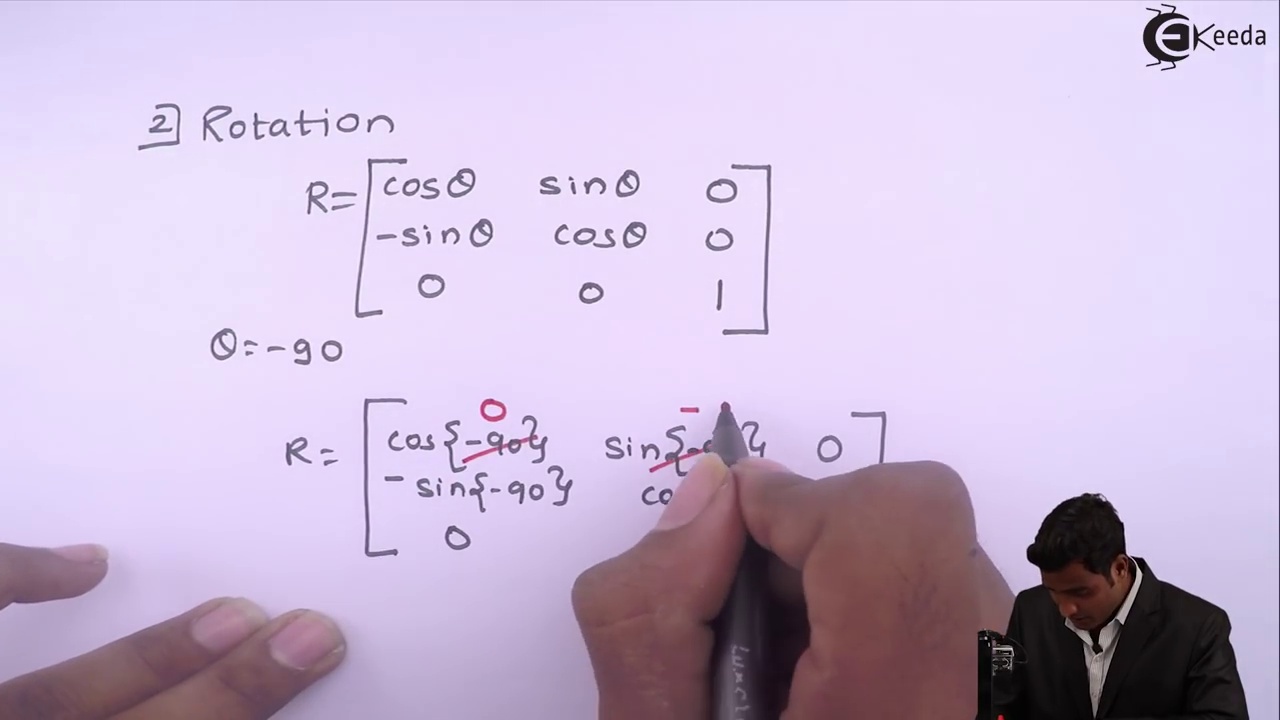 EKeeda
2] Rotation
R= [ cosθ sinθ 0
-sinθ cosθ 0
0 0 1 ]
θ=-90
0 -
R= [ cos{-90} sin{-90} 0 ]
-sin{-90} co
0